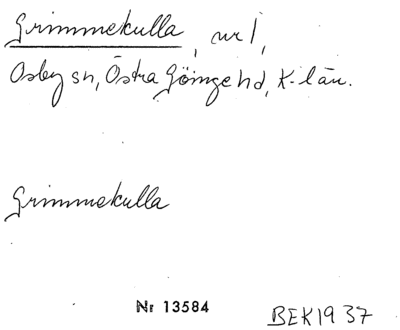 Grimmekulla, nr 1,
Osby sn, Östra Göinge hd, K-län.
Grimmekulla
Nr 13584
BEK1937